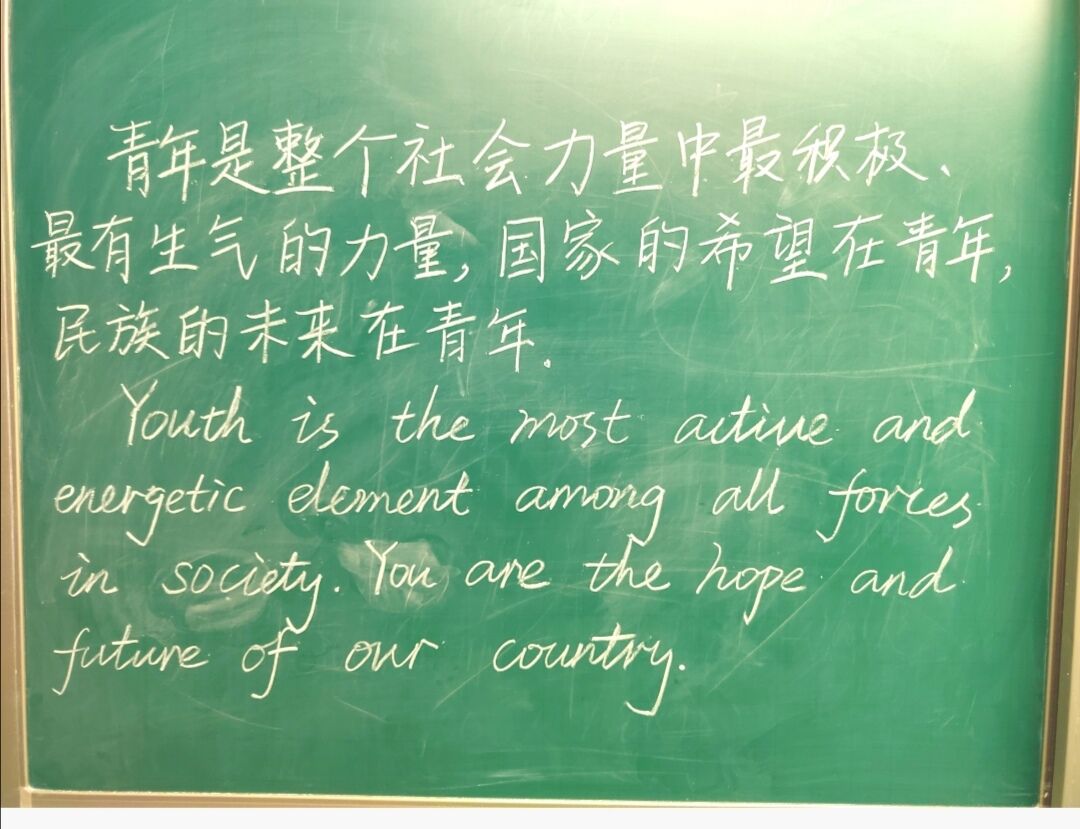 青年是整个社会力量中最积极、
最有生气的力量,国家的希望在青年,
民族的未来在青年.
Youth is the most active and
energetic element among all forces
in society. You are the hope and
future of our country.